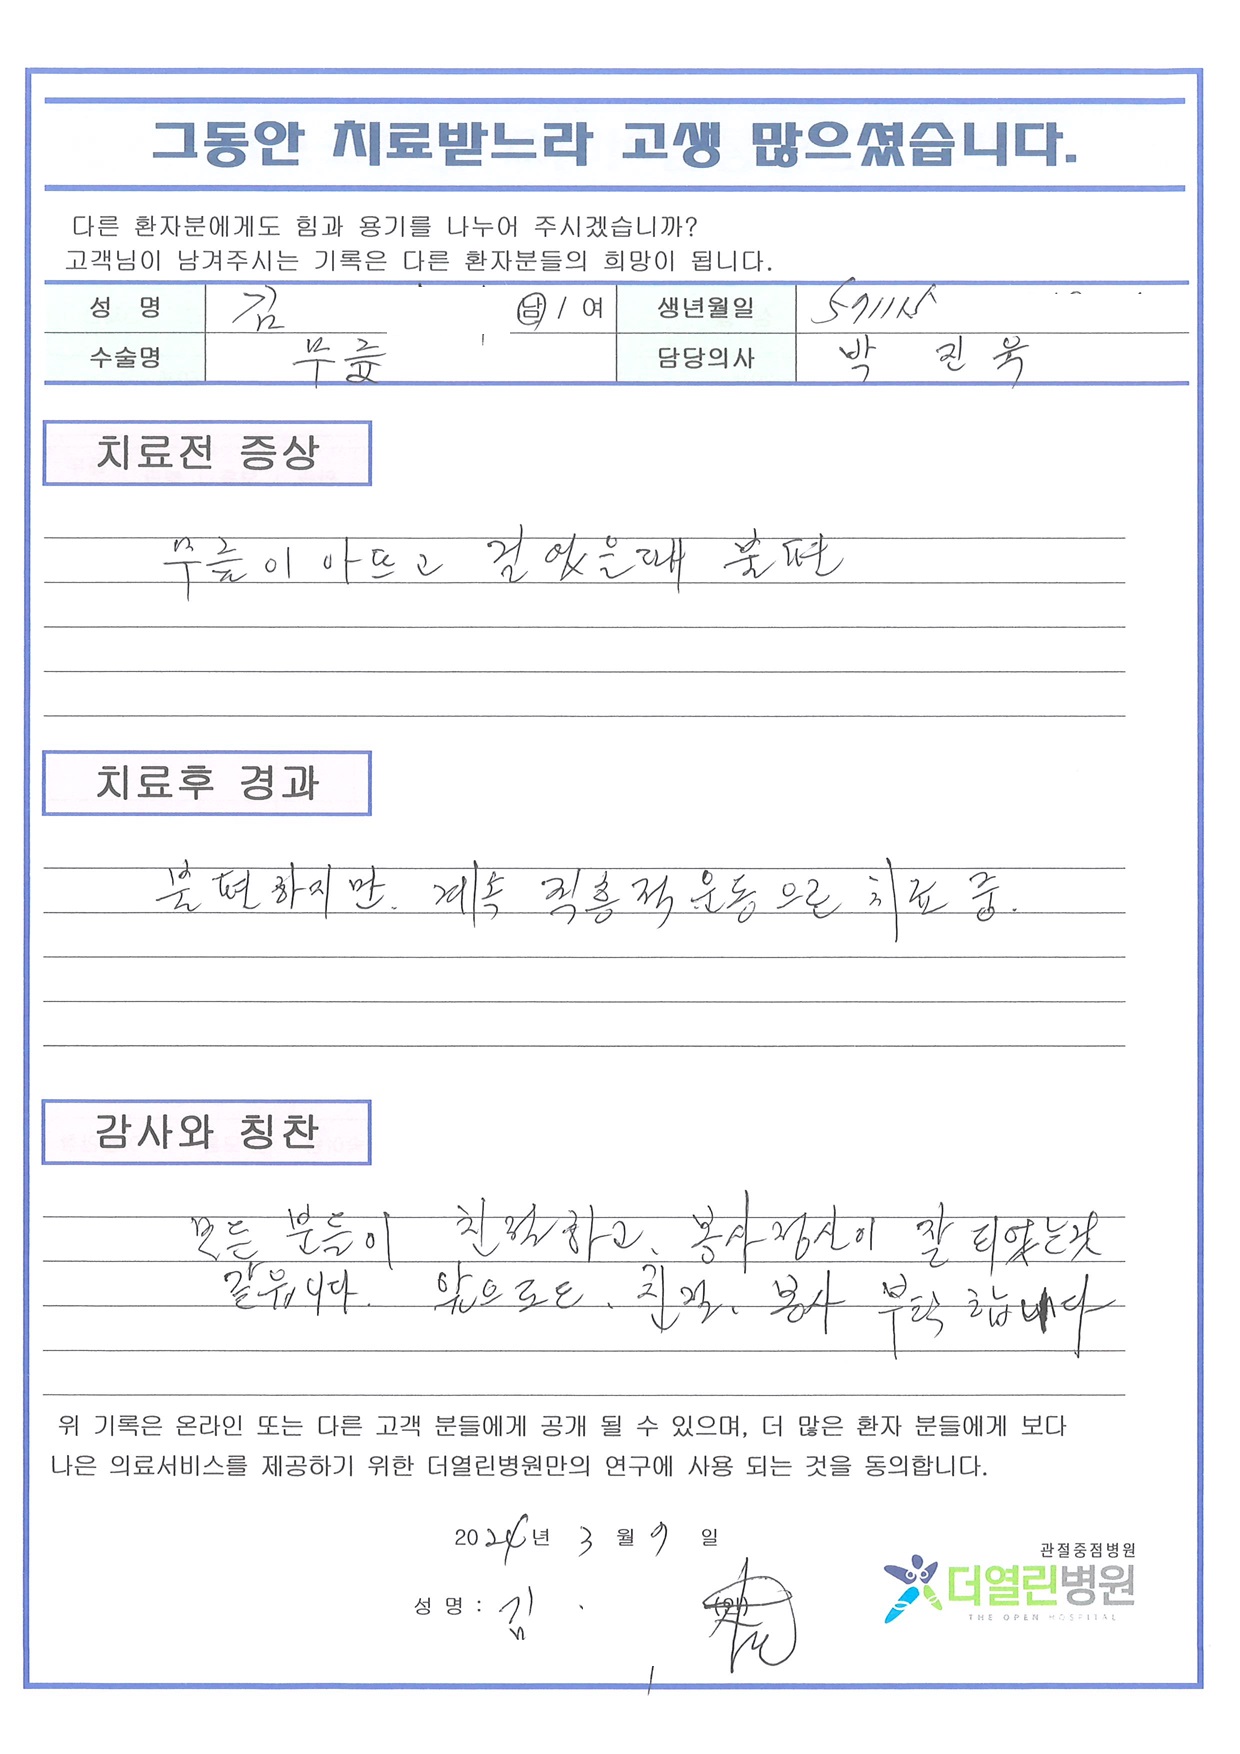 그동안 치료받느라 고생 많으셨습니다.
다른 환자분에게도 힘과 용기를 나누어 주시겠습니까?
고객님이 남겨주시는 기록은 다른 환자분들의 희망이 됩니다.
성 명 김 남 / 여 생년월일
수술명 무릎 담당의사 박 진 욱
치료전 증상
무릎이 아프고 걸었을때 불편
치료후 경과
불편하지만. 계속 운동으로 치료 중.
감사와 칭찬
모든 분들이 친절하고, 봉사정신이 잘 되었는것
같읍니다. 앞으로도. 친절. 봉사 부탁합니다
위 기록은 온라인 또는 다른 고객 분들에게 공개 될 수 있으며, 더 많은 환자 분들에게 보다
나은 의료서비스를 제공하기 위한 더열린병원만의 연구에 사용 되는 것을 동의합니다.
2024년 3월 9일
성 명 : 김
관절중점병원
더열린병원
THE OPEN HOSPITAL